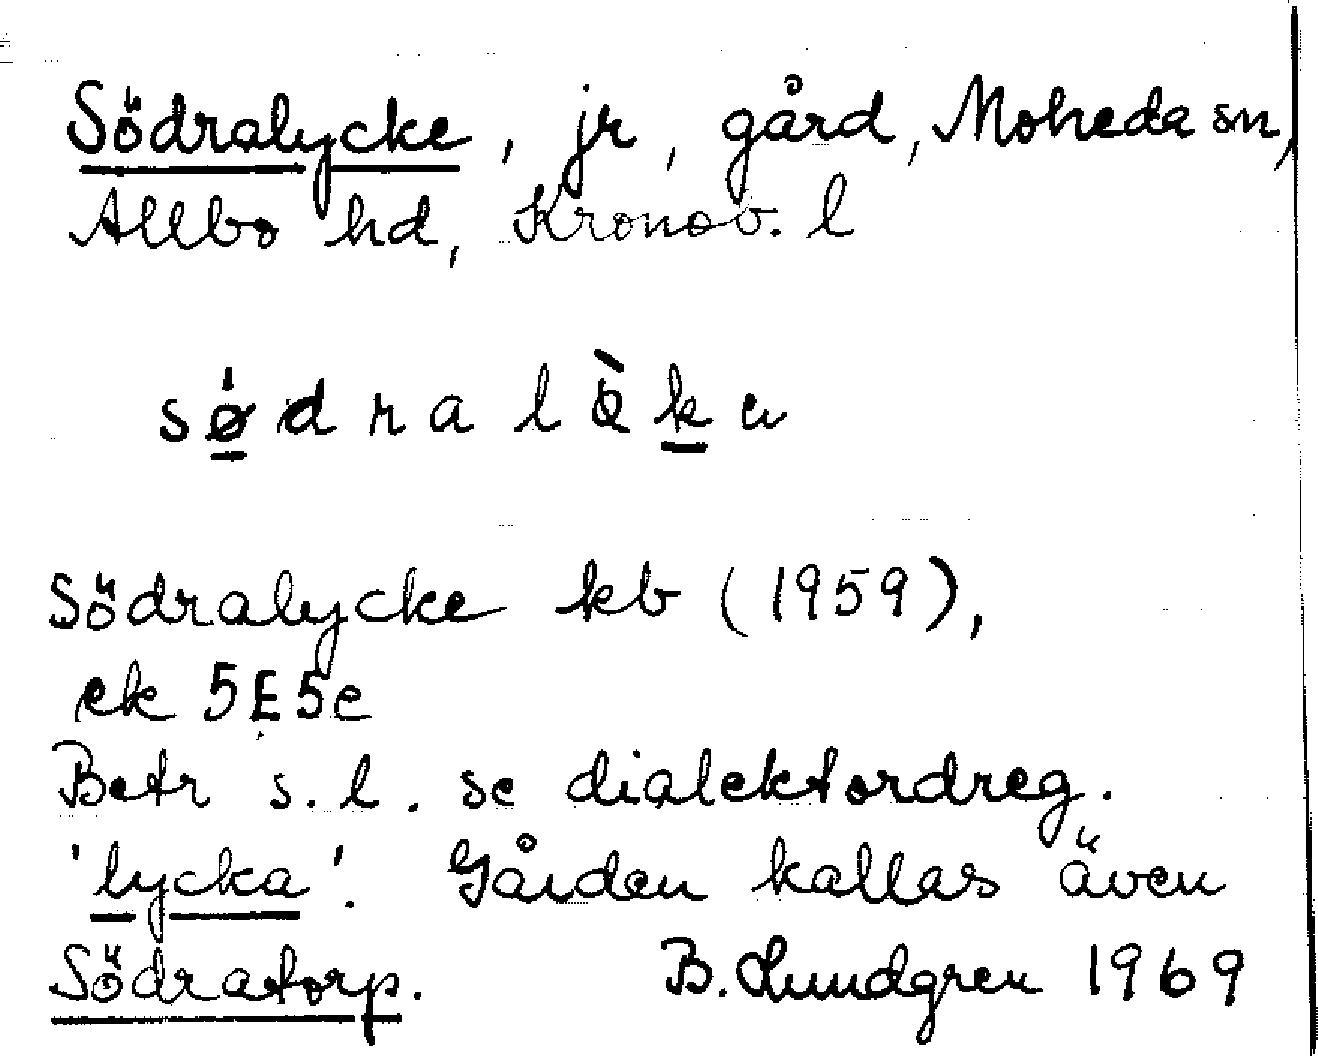 Södralycke, jr, gård, Moheda sn,
Allbo hd, Kronob. l
södralycke kb (1959),
ek 5E5e
Betr s. l. se dialektordreg.
'lycka'. Gården kallas även
Södratorp. B. Lundgren 1969